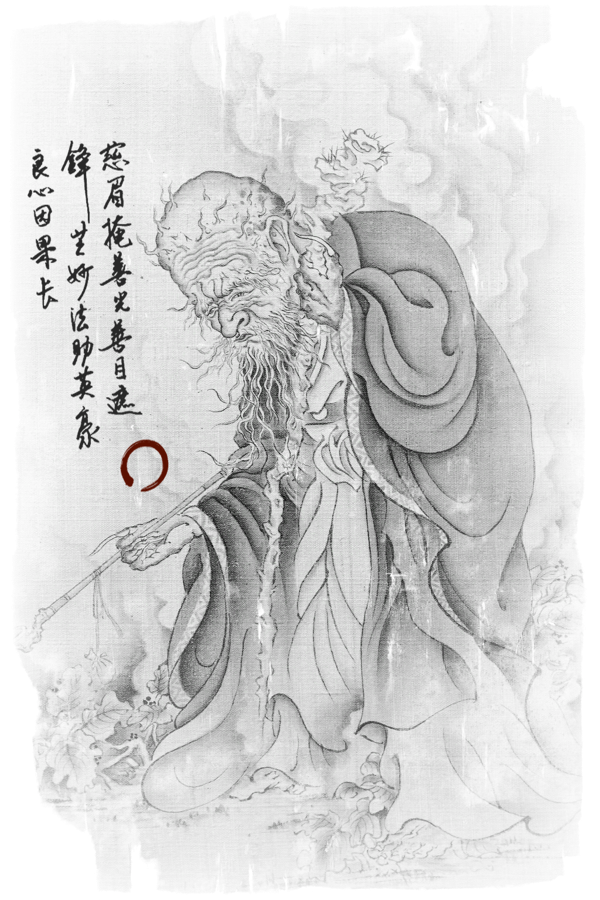 慈眉掩善光善目遮
锋芒妙法助英豪
良心因果长